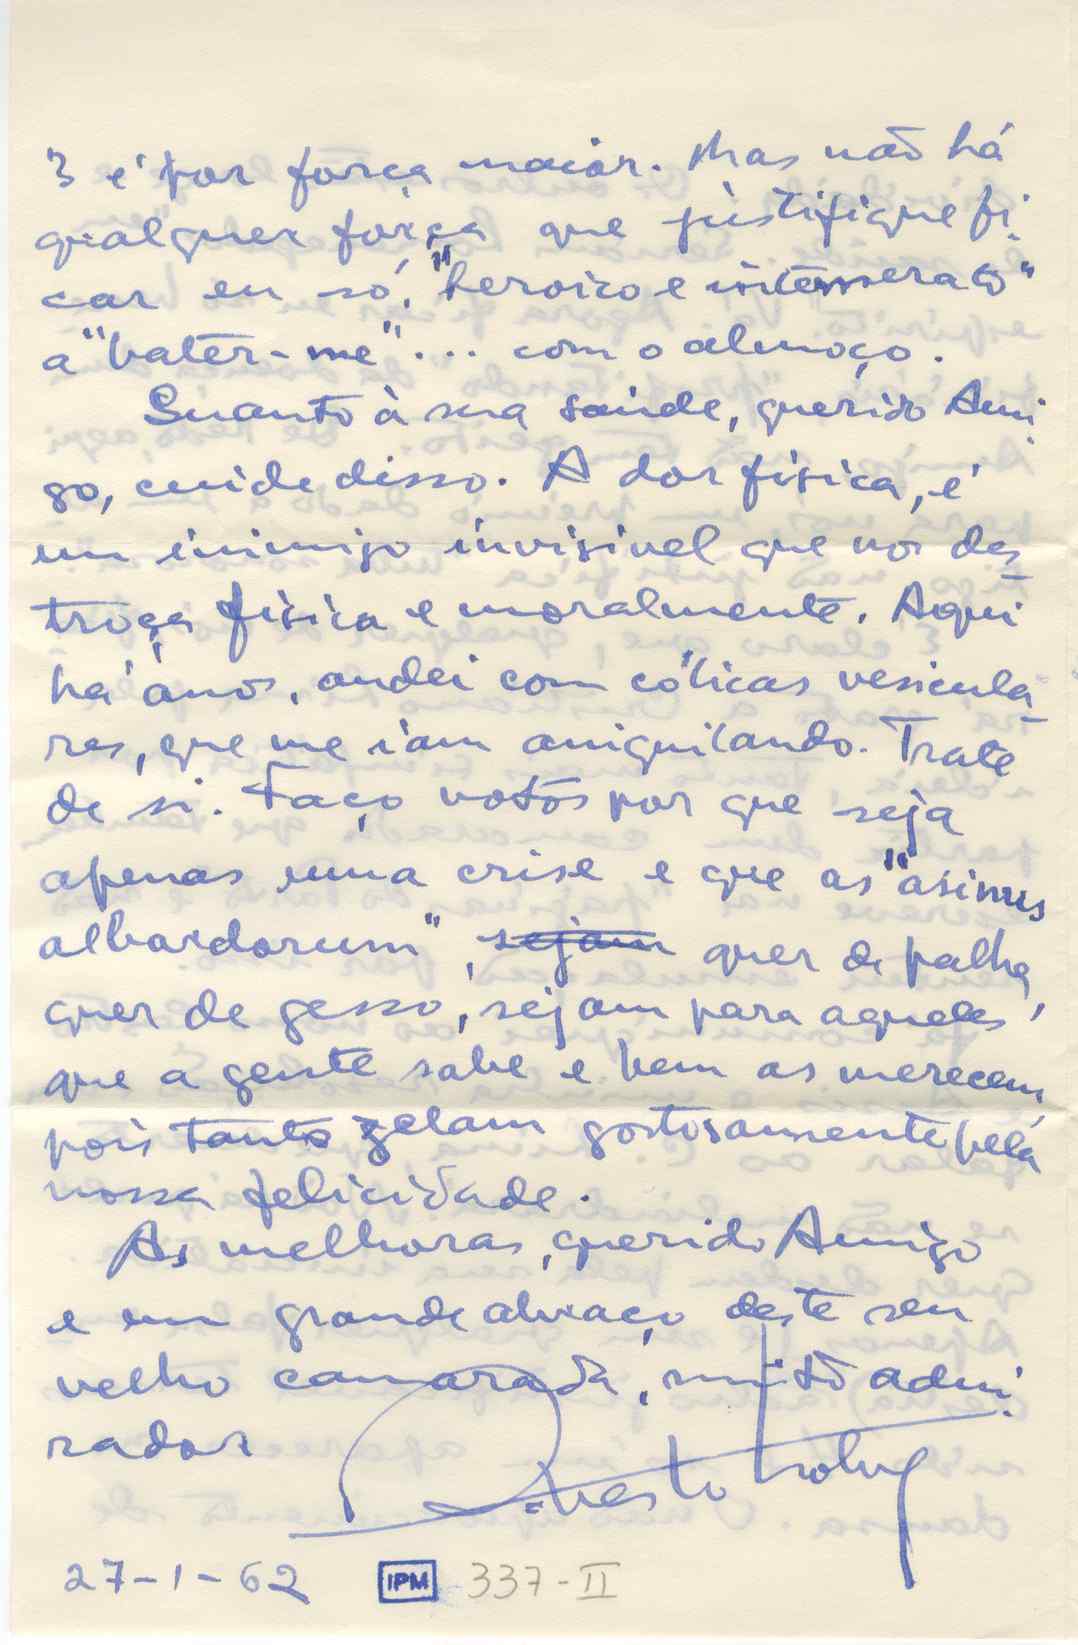 3 é por força maior. Mas não há
qualquer força que justifique fi-
car eu só, "heroico e intemerato"
a "bater-me"... com o almoço.
Quanto à sua saúde, querido Ami-
go, cuide disso. A dor física, é
um inimigo invisivel que nos des-
troça fisica e moralmente. Aqui
há anos, andei com cólicas vesicula-
res, que me iam aniquilando. Trate
de si. Faço votos por que seja
apenas uma crise e que as "asinus
albardorum", sejam quer de palha,
quer de gesso, sejam para aqueles
que a gente sabe e bem as merecem
pois tanto zelam gostosamente pela
nossa felicidade.
As melhoras, querido Amigo
e um grande abraço deste seu
velho camarada, muito admi-
rador
27-1-62 IPM 337-II